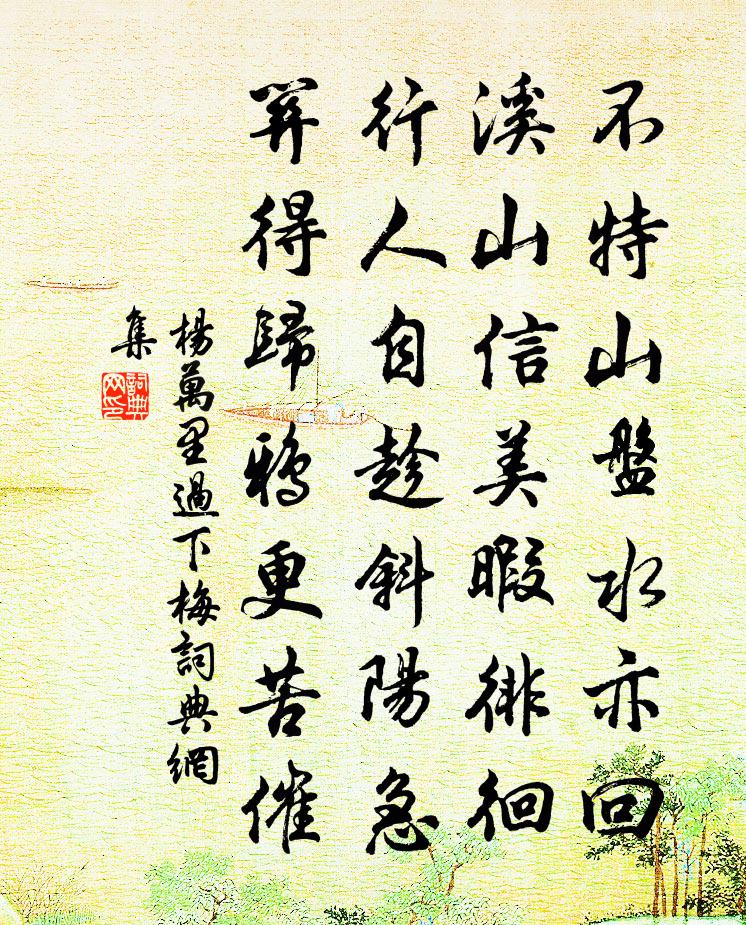 不特山盤水亦回
溪山信美暇徘徊
行人自趁斜陽急
關得歸鴉更苦催
楊萬里過下梅詞典網
集
詞典
网印